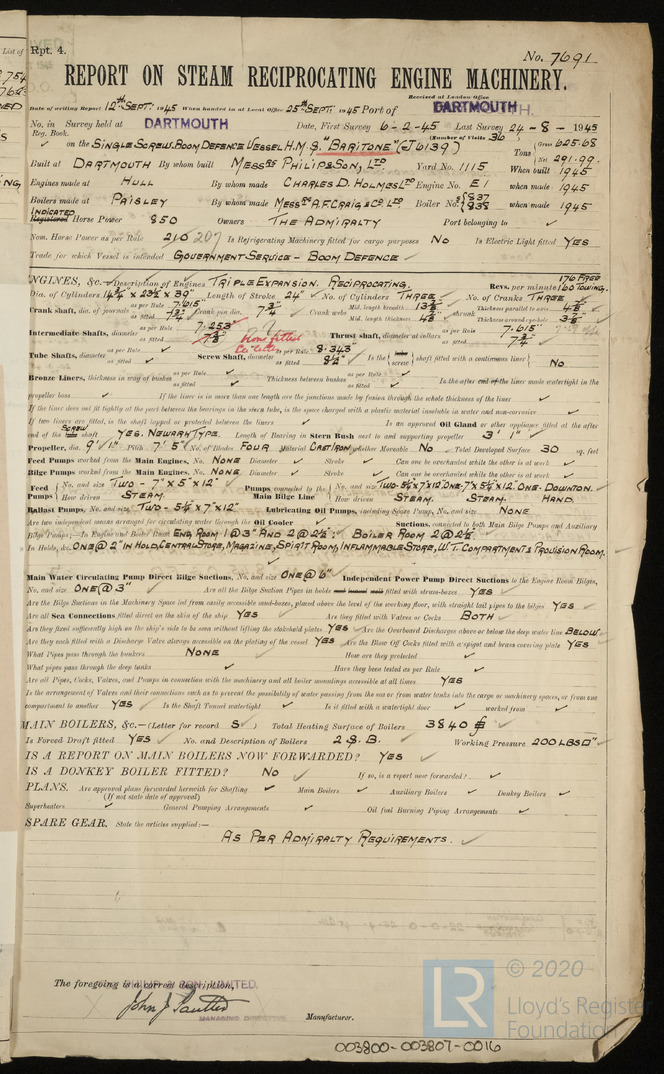 List of
Rpt. 4.
No. 7691
REPORT ON STEAM RECIPROCATING ENGINE MACHINERY.
Received at London Office
Date of writing Report 12th SEPT: 1945 When handed in at Local Office 25th SEPT 1945 Port of DARTMOUTH.
No. in Survey held at DARTMOUTH Date, First Survey 6-2-45 Last Survey 24-8-1945
Reg. Book. (Number of Visits 36)
on the SINGLE SCREW, BOOM DEFENCE VESSEL H.M.S. "BARITONE" (J6139) Tons Gross 625.68 Net 291.99
Built at DARTMOUTH By whom built MESSRS PHILIP & SON, LTD Yard No. 1115 When built 1945
Engines made at HULL By whom made CHARLES D. HOLMES LTD Engine No. E1 when made 1945
Boilers made at PAISLEY By whom made MESSRS A.F. CRAIG & CO LTD. Boiler No. 837 838 when made 1945
INDICATED
Registered Horse Power 850 Owners THE ADMIRALTY Port belonging to
Nom. Horse Power as per Rule 210 207 Is Refrigerating Machinery fitted for cargo purposes NO Is Electric Light fitted YES
Trade for which Vessel is intended GOVERNMENT SERVICE - BOOM DEFENCE
ENGINES, &c. Description of Engines TRIPLE EXPANSION. RECIPROCATING. Revs. per minute 176 FREE 160 TOWING.
Dia. of Cylinders 14¾" x 23½ x 39" Length of Stroke 24" No. of Cylinders THREE No. of Cranks THREE
Crank shaft, dia. of journals as per Rule 7.615" as fitted 7¾" Crank pin dia. 7¾" Crank webs Mid. length breadth 13½" Mid. length thickness 4⅝" shrunk Thickness parallel to axis 4⅝" Thickness around eye-hole 3½"
Intermediate Shafts, diameter as per Rule 7.253" as fitted 7⅜" None fitted Thrust shaft, diameter at collars as per Rule 7.615" as fitted 7¾"
Tube Shafts, diameter as per Rule as fitted Screw Shaft, diameter as per Rule 8.343" as fitted 8½" Is the screw shaft fitted with a continuous liner NO
Bronze Liners, thickness in way of bushes as per Rule as fitted Thickness between bushes as per Rule as fitted Is the after end of the liner made watertight in the
propeller boss If the liner is in more than one length are the junctions made by fusion through the whole thickness of the liner
If the liner does not fit tightly at the part between the bearings in the stern tube, is the space charged with a plastic material insoluble in water and non-corrosive
If two liners are fitted, is the shaft lapped or protected between the liners Is an approved Oil Gland or other appliance fitted at the after
end of the SCREW shaft YES. NEWARK TYPE. Length of Bearing in Stern Bush next to and supporting propeller 3' 1"
Propeller, dia. 9' 1" Pitch 7' 5" No. of Blades FOUR Material CAST IRON whether Moveable NO Total Developed Surface 30 sq. feet
Feed Pumps worked from the Main Engines, No. NONE Diameter Stroke Can one be overhauled while the other is at work
Bilge Pumps worked from the Main Engines, No. NONE Diameter Stroke Can one be overhauled while the other is at work
Feed Pumps No. and size TWO - 7" x 5" x 12" How driven STEAM Pumps connected to the Main Bilge Line No. and size TWO-5½"x7"x12" ONE-7"x5½"x12" ONE-DOWNTON. How driven STEAM. STEAM. HAND.
Ballast Pumps, No. and size TWO - 5½ x 7" x 12" Lubricating Oil Pumps, including Spare Pump, No. and size NONE
Are two independent means arranged for circulating water through the Oil Cooler Suctions, connected to both Main Bilge Pumps and Auxiliary
Bilge Pumps;—In Engine and Boiler Room ENG. ROOM 1 @ 3" AND 2 @ 2½"; BOILER ROOM 2 @ 2½"
In Holds, &c. ONE @ 2" IN HOLD, CENTRAL STORE, MAGAZINE, SPIRIT ROOM, INFLAMMABLE STORE, W.T. COMPARTMENT & PROVISION ROOM.
Main Water Circulating Pump Direct Bilge Suctions, No. and size ONE @ 6" Independent Power Pump Direct Suctions to the Engine Room Bilges,
No. and size ONE @ 3" Are all the Bilge Suction Pipes in holds fitted with strum-boxes YES
Are the Bilge Suctions in the Machinery Space led from easily accessible mud-boxes, placed above the level of the working floor, with straight tail pipes to the bilges YES
Are all Sea Connections fitted direct on the skin of the ship YES Are they fitted with Valves or Cocks BOTH
Are they fixed sufficiently high on the ship's side to be seen without lifting the stokehold plates YES Are the Overboard Discharges above or below the deep water line BELOW
Are they each fitted with a Discharge Valve always accessible on the plating of the vessel YES Are the Blow Off Cocks fitted with a spigot and brass covering plate YES
What Pipes pass through the bunkers NONE How are they protected
What pipes pass through the deep tanks Have they been tested as per Rule
Are all Pipes, Cocks, Valves, and Pumps in connection with the machinery and all boiler mountings accessible at all times YES
Is the arrangement of Valves and their connections such as to prevent the possibility of water passing from the sea or from water tanks into the cargo or machinery spaces, or from one
compartment to another YES Is the Shaft Tunnel watertight Is it fitted with a watertight door worked from
MAIN BOILERS, &c.—(Letter for record S) Total Heating Surface of Boilers 3840
Is Forced Draft fitted YES No. and Description of Boilers 2 S.B. Working Pressure 200 LBS □"
IS A REPORT ON MAIN BOILERS NOW FORWARDED? YES
IS A DONKEY BOILER FITTED? NO If so, is a report now forwarded?
PLANS. Are approved plans forwarded herewith for Shafting Main Boilers Auxiliary Boilers Donkey Boilers
(If not state date of approval)
Superheaters General Pumping Arrangements Oil fuel Burning Piping Arrangements
SPARE GEAR. State the articles supplied:—
AS PER ADMIRALTY REQUIREMENTS.
The foregoing is a correct description,
MANAGING DIRECTOR Manufacturer.
© 2020
LR Lloyd's Register
Foundation
003800-003807-0016